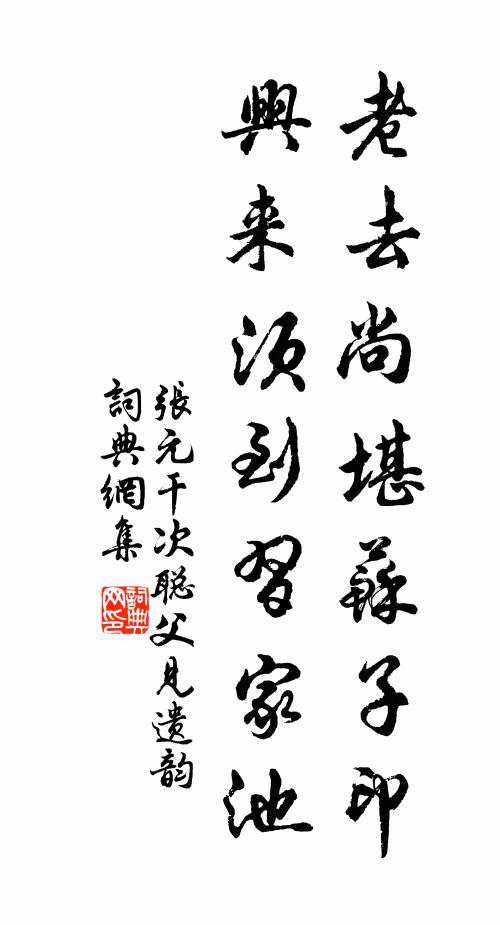 老去尚堪蘇子印
興来須到習家池
張元干次聪父見遺韵
詞典網集
詞典网印